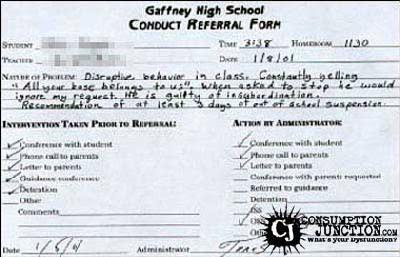 Gaffney High School
CONDUCT REFERRAL FORM
STUDENT TIME 3:38 HOMEROOM 1130
TEACHER DATE 1/8/01
NATURE OF PROBLEM: Disruptive behavior in class. Constantly yelling
"All your base belongs to us". When asked to stop he would
ignore my request. He is guilty of insubordination.
Recommendation of at least 3 days of out of school suspension.
INTERVENTION TAKEN PRIOR TO REFERRAL:
Conference with student
Phone call to parents
Letter to parents
Guidance conference
Detention
Other
Comments
Date Administrator
ACTION BY ADMINISTRATOR:
Conference with student
Phone call to parents
Letter to parents
Conference with parents requested
Referred to guidance
Detention
ISS
CJ
CONSUMPTION
JUNCTION.COM
What's your Dysfunction?